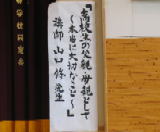 『高校生の父親・母親として
～本当に大切なこと～』
講師 山口 修 先生